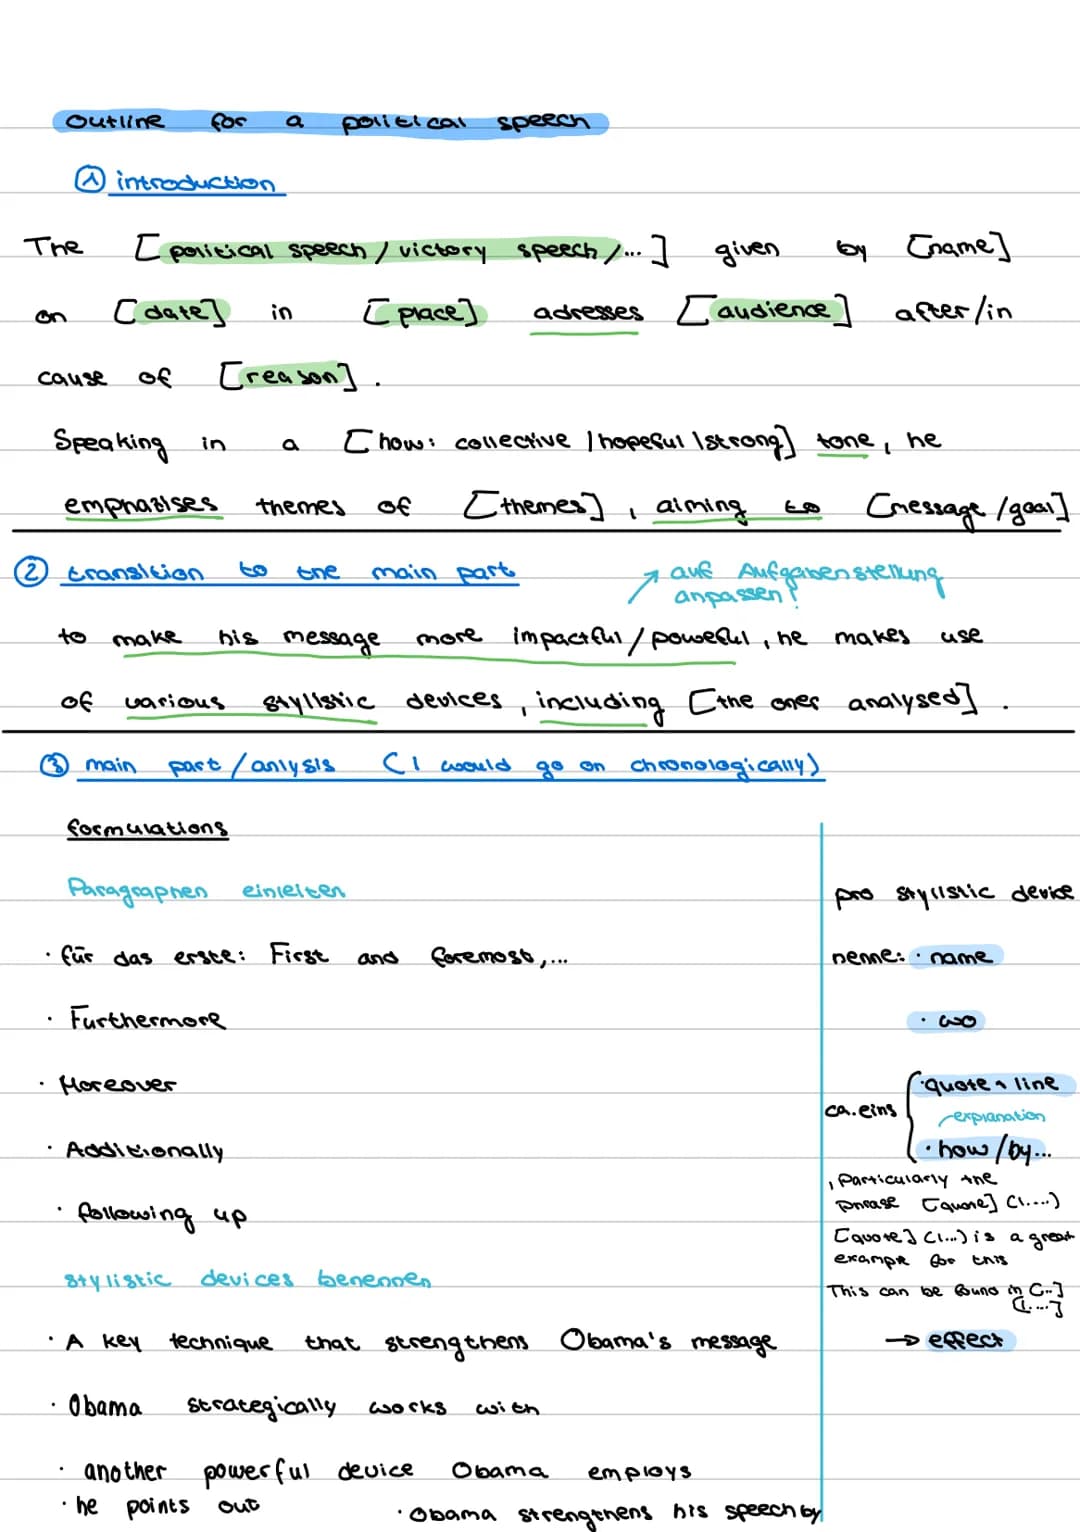 Outline for a political speech
① introduction
The [political speech / victory speech /...] given by [name]
on [date] in [place] adresses [audience] after/in
cause of [reason].
Speaking in a [how: collective | hopeful | strong] tone, he
emphazises themes of [themes], aiming to [message /goal]
② transition to the main part
↗ auf Aufgabenstellung
anpassen!
to make his message more impactful / poweful, he makes use
of various stylistic devices, including [the ones analysed].
③ main part / anlysis (I would go on chronologically)
formulations
Paragraphen einleiten
· für das erste: First and foremost,...
· Furthermore
· Moreover
· Additionally
· following up
stylistic devices benennen
· A key technique that strengthens Obama's message
· Obama strategically works with
· another powerful device Obama employs
· he points out
· Obama strengthens his speech by
pro stylistic device
nenne: · name
· wo
ca. eins
· quote + line
explanation
· how / by...
, particularly the
phrase [quote] (l....)
[quote] (l...) is a great
example for this
This can be found in [..]
[l....]
→ effect